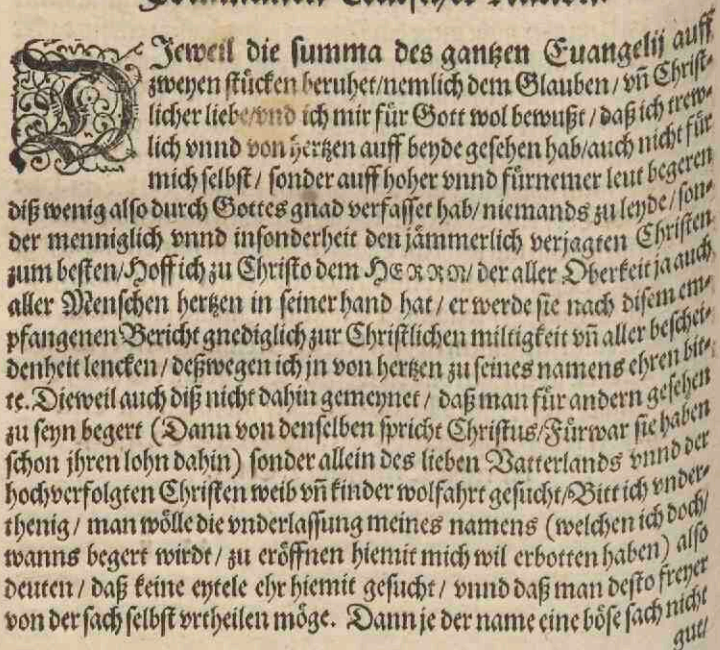 DJeweil die summa des gantzen Euangelij auff
zweyen stücken beruhet/nemlich dem Glauben/ vñ Christ-
licher liebe/vnd ich mir für Gott wol bewußt/ daß ich trew-
lich vnnd von hertzen auff beyde gesehen hab/auch nicht für
mich selbst/ sonder auff hoher vnnd fürnemer leut begeren
diß wenig also durch Gottes gnad verfasset hab/ niemands zu leyde/ son-
der menniglich vnnd insonderheit den jämmerlich verjagten Christen
zum besten/Hoff ich zu Christo dem HERRN/ der aller Oberkeit ja auch
aller Menschen hertzen in seiner hand hat/ er werde sie nach disem em-
pfangenen Bericht gnediglich zur Christlichen miltigkeit vñ aller beschei-
denheit lencken/ deßwegen ich jn von hertzen zu seines namens ehren bit-
te. Dieweil auch diß nicht dahin gemeynet/ daß man für andern gesehen
zu seyn begert (Dann von denselben spricht Christus/Fürwar sie haben
schon jhren lohn dahin) sonder allein des lieben Vatterlands vnnd der
hochverfolgten Christen weib vñ kinder wolfahrt gesucht/Bitt ich vnder-
thenig/ man wölle die vnderlassung meines namens (welchen ich doch/
wanns begert wirdt/ zu eröffnen hiemit mich wil erbotten haben) also
deuten/ daß keine eytele ehr hiemit gesucht/ vnnd daß man desto freyer
von der sach selbst vrtheilen möge. Dann je der name eine böse sach nicht
gut/